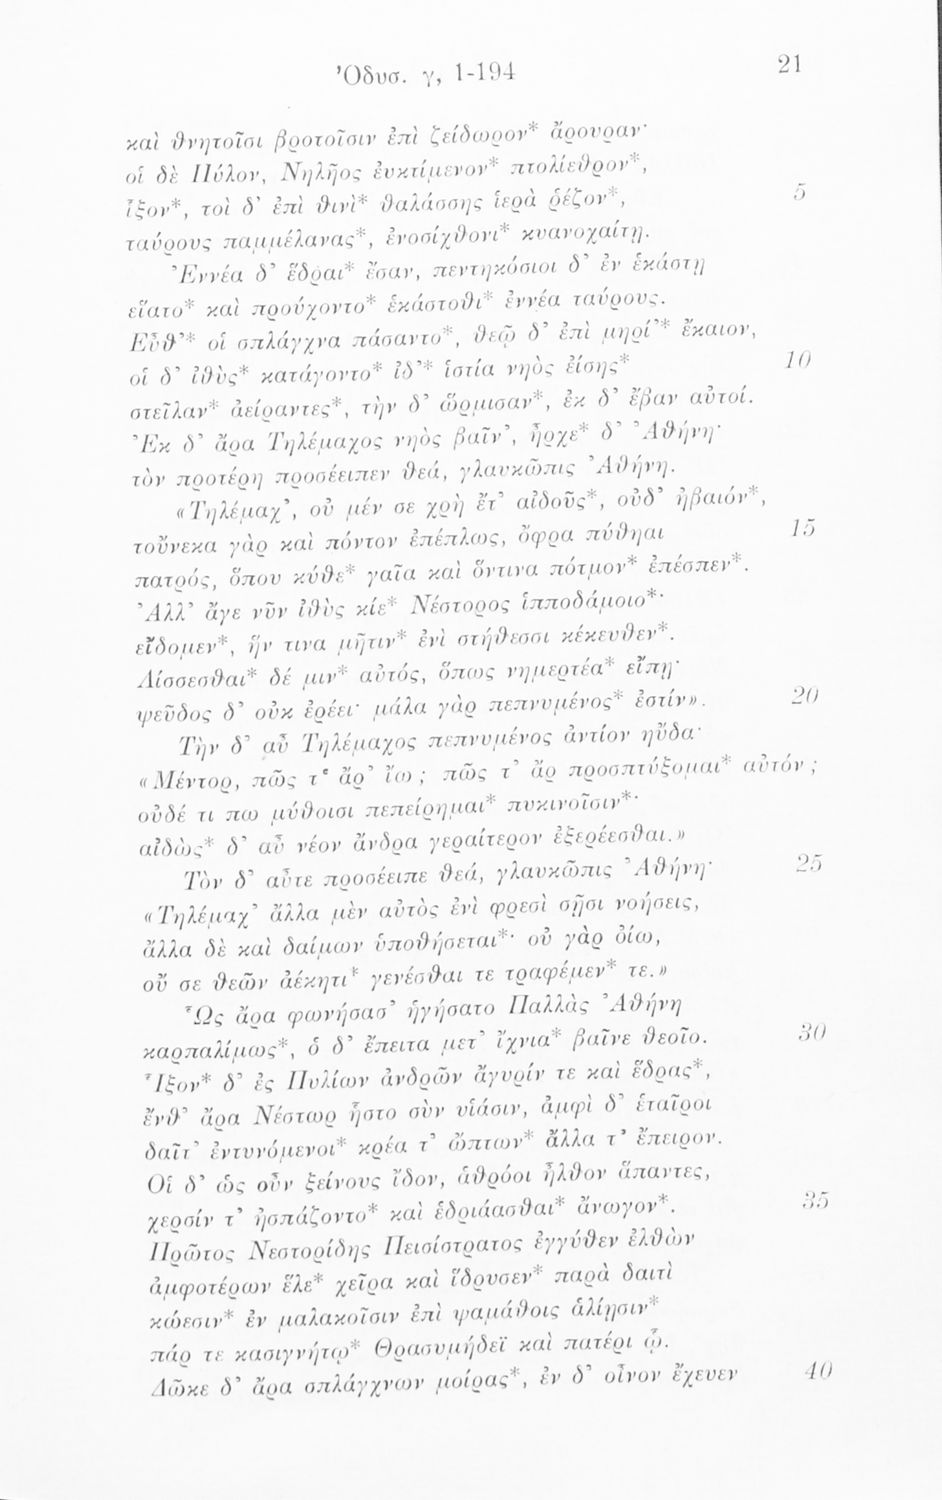 Ὀδυσ. γ, 1-194
21
καὶ θνητοῖσι βροτοῖσιν ἐπὶ ζείδωρον* ἄρουραν·
οἱ δὲ Πύλον, Νηλῆος ἐυκτίμενον* πτολίεθρον*,
ἷξον*, τοὶ δ' ἐπὶ θινὶ* θαλάσσης ἱερὰ ῥέζον*, 5
ταύρους παμμέλανας*, ἐνοσίχθονι* κυανοχαίτῃ.
Ἐννέα δ' ἕδραι* ἔσαν, πεντηκόσιοι δ' ἐν ἑκάστῃ
εἵατο* καὶ προύχοντο* ἑκάστοθι* ἐννέα ταύρους.
Εὖθ'* οἱ σπλάγχνα πάσαντο*, θεῷ δ' ἐπὶ μηρί'* ἔκαιον,
οἱ δ' ἰθὺς* κατάγοντο* ἰδ'* ἱστία νηὸς ἐίσης* 10
στεῖλαν* ἀείραντες*, τὴν δ' ὥρμισαν*, ἐκ δ' ἔβαν αὐτοί.
Ἐκ δ' ἄρα Τηλέμαχος νηὸς βαῖν', ἦρχε* δ' Ἀθήνη·
τὸν προτέρη προσέειπεν θεά, γλαυκῶπις Ἀθήνη.
«Τηλέμαχ', οὐ μέν σε χρὴ ἔτ' αἰδοῦς*, οὐδ' ἠβαιόν*,
τοὔνεκα γὰρ καὶ πόντον ἐπέπλως, ὄφρα πύθηαι 15
πατρός, ὅπου κύθε* γαῖα καὶ ὅντινα πότμον* ἐπέσπεν*.
Ἀλλ' ἄγε νῦν ἰθὺς κίε* Νέστορος ἱπποδάμοιο*·
εἴδομεν*, ἥν τινα μῆτιν* ἐνὶ στήθεσσι κέκευθεν*.
Λίσσεσθαι* δέ μιν* αὐτός, ὅπως νημερτέα* εἴπῃ·
ψεῦδος δ' οὐκ ἐρέει· μάλα γὰρ πεπνυμένος* ἐστίν». 20
Τὴν δ' αὖ Τηλέμαχος πεπνυμένος ἀντίον ηὔδα·
«Μέντορ, πῶς τ' ἄρ' ἴω; πῶς τ' ἄρ προσπτύξομαι* αὐτόν;
οὐδέ τι πω μύθοισι πεπείρημαι* πυκινοῖσιν*·
αἰδὼς* δ' αὖ νέον ἄνδρα γεραίτερον ἐξερέεσθαι.»
Τὸν δ' αὖτε προσέειπε θεά, γλαυκῶπις Ἀθήνη· 25
«Τηλέμαχ' ἄλλα μὲν αὐτὸς ἐνὶ φρεσὶ σῇσι νοήσεις,
ἄλλα δὲ καὶ δαίμων ὑποθήσεται*· οὐ γὰρ ὀίω,
οὔ σε θεῶν ἀέκητι* γενέσθαι τε τραφέμεν* τε.»
Ὣς ἄρα φωνήσασ' ἡγήσατο Παλλὰς Ἀθήνη
καρπαλίμως*, ὁ δ' ἔπειτα μετ' ἴχνια* βαῖνε θεοῖο. 30
Ἷξον* δ' ἐς Πυλίων ἀνδρῶν ἄγυρίν τε καὶ ἕδρας*,
ἔνθ' ἄρα Νέστωρ ἧστο σὺν υἱάσιν, ἀμφὶ δ' ἑταῖροι
δαῖτ' ἐντυνόμενοι* κρέα τ' ὤπτων* ἄλλα τ' ἔπειρον.
Οἱ δ' ὡς οὖν ξείνους ἴδον, ἁθρόοι ἦλθον ἅπαντες,
χερσίν τ' ἠσπάζοντο* καὶ ἑδριάασθαι* ἄνωγον*. 35
Πρῶτος Νεστορίδης Πεισίστρατος ἐγγύθεν ἐλθὼν
ἀμφοτέρων ἕλε* χεῖρα καὶ ἵδρυσεν* παρὰ δαιτὶ
κώεσιν* ἐν μαλακοῖσιν ἐπὶ ψαμάθοις ἁλίῃσιν*
πάρ τε κασιγνήτῳ* Θρασυμήδεϊ καὶ πατέρι ᾧ.
Δῶκε δ' ἄρα σπλάγχνων μοίρας*, ἐν δ' οἶνον ἔχευεν 40